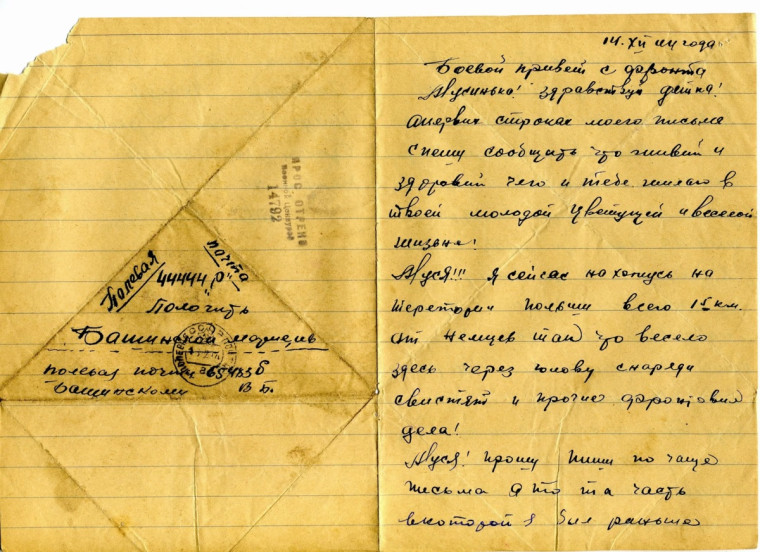 Полевая почта
44444 "Р"
Получить
Башинской
полевая почта
Башинскому В Б.
ПРОСМОТРЕНО
Военной Цензурой
14792
14. XII 44 года
Боевой привет с фронта
Мусинька! здравствуй детка!
строках моего письма
спешу сообщить что живий и
здоровий чего и тебе желаю в
твоей молодой цветущей и веселой
жизьне!
Муся!!! Я сейчас нахожусь на
теретории польши всего 15 км.
от немцев так что весело
здесь через голову снаряди
свистят и прочие фронтовие
дела!
Муся! прошу пиши по чаще
письма а то та часть
в которой я бил раньше